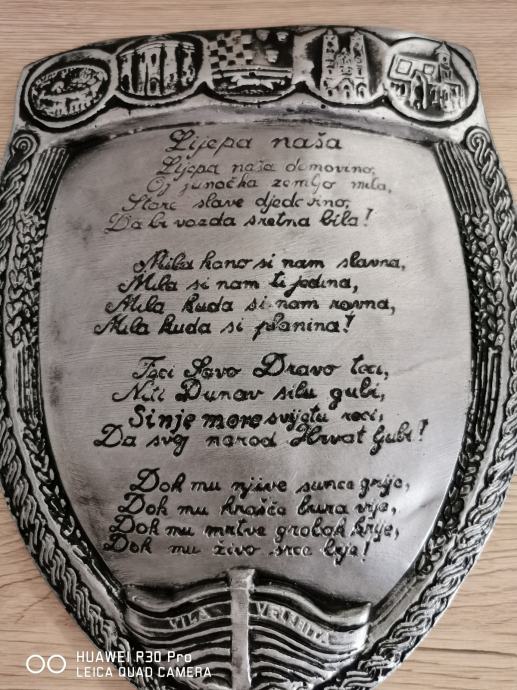 Lijepa naša
Lijepa naša domovino,
Oj junočka zemljo mila,
Stare slave djedovino,
Da bi vazda sretna bila!
Mila kano si nam slavna,
Mila si nam ti jedina,
Mila kuda si nam ravna,
Mila kuda si planina!
Teci Savo Dravo teci,
Niti Dunav silu gubi,
Sinje more svijetu reci,
Da svoj narod Hrvat ljubi!
Dok mu njive sunce grije,
Dok mu hrašće bura vije,
Dok mu mrtve grobak krije,
Dok mu živo srce bije!
VILA VELEBITA
HUAWEI P30 Pro
LEICA QUAD CAMERA